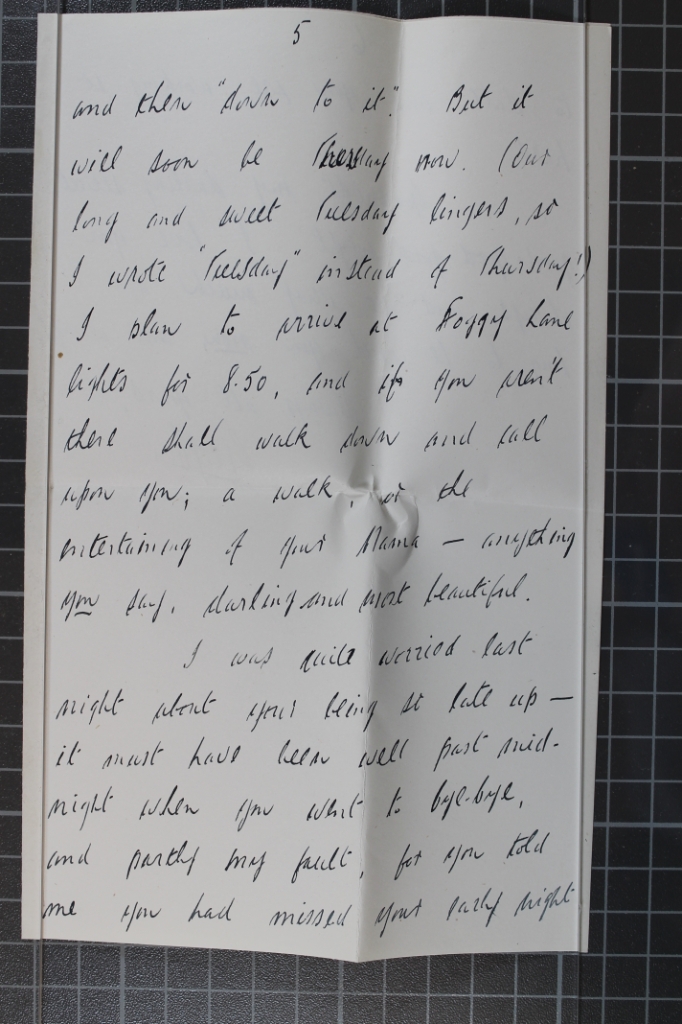 5
and then "down to it". But it
will soon be Thursday now. (Our
long and sweet Tuesday lingers, so
I wrote "Tuesday" instead of Thursday!)
I plan to arrive at Foggy Lane
lights for 8.50, and if you aren't
there shall walk down and call
upon you; a walk, or the
entertaining of your Mama — anything
you say, darling and most beautiful.
I was quite worried last
night about your being so late up —
it must have been well past mid-
night when you went to bye-bye,
and partly my fault, for you told
me you had missed your early night